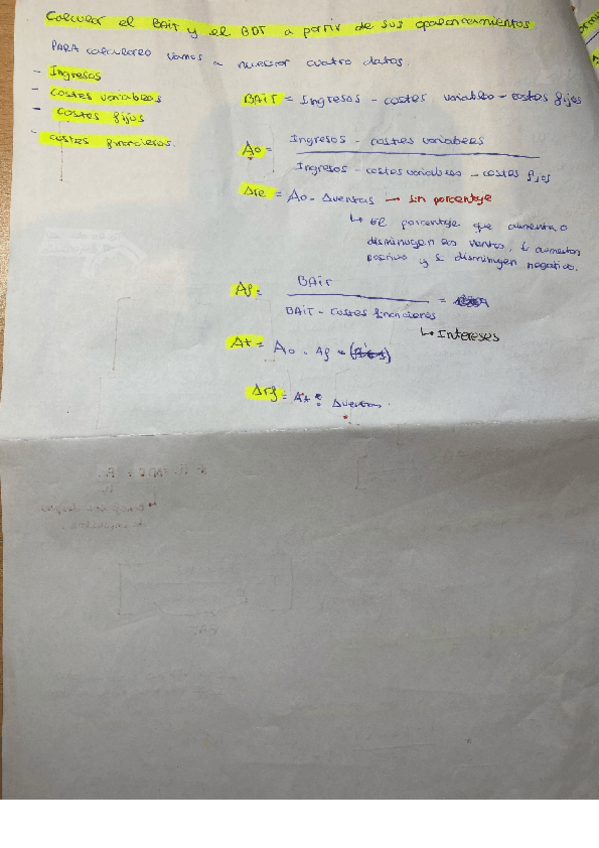 Calcular el BAIT y el BDT a partir de sus apalancamientos
PARA calcularlo vamos a necesitar cuatro datos.
- Ingresos
- costes variables
- costes fijos
- costes financieros.
BAIT = Ingresos - costes variables - costes fijos
Ao = Ingresos - costes variables
Ingresos - costes variables - costes fijos
Δre = Ao · Δventas → sin porcentaje
↳ el porcentaje que aumenta o
disminuyen las ventas, si aumentan
positivo y si disminuyen negativo.
Af = BAIT
BAIT - costes financieros =
↳ Intereses
At = Ao · Af =
Δrf = At · Δventas.